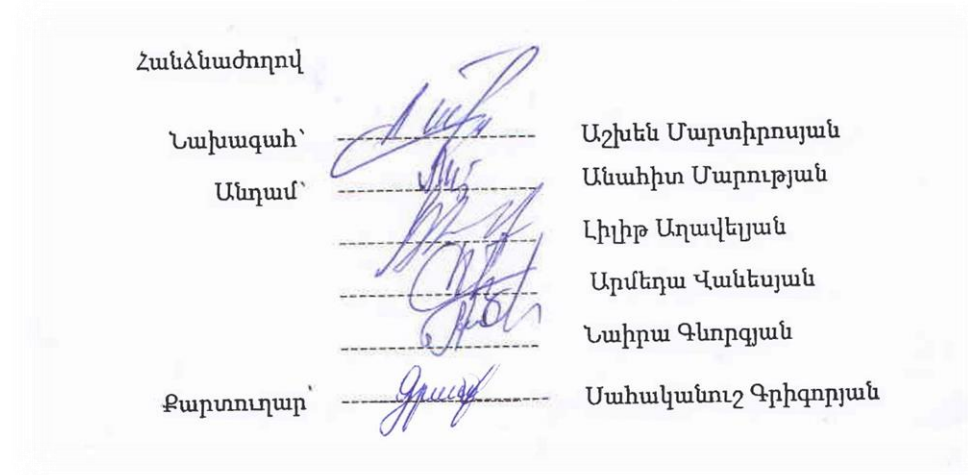 Հանձնաժողով
Նախագահ՝ Աշխեն Մարտիրոսյան
Անդամ՝ Անահիտ Մարության
Լիլիթ Աղավելյան
Արմեդա Վանեսյան
Նաիրա Գևորգյան
Քարտուղար՝ Սահականուշ Գրիգորյան